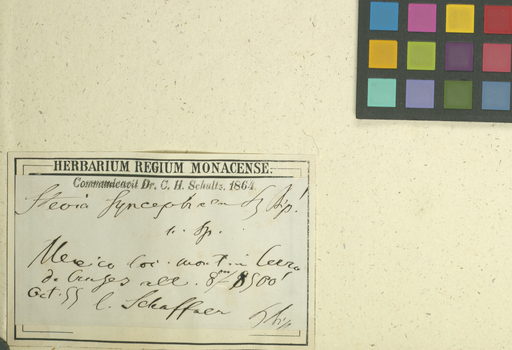 HERBARIUM REGIUM MONACENSE.
Communicavit Dr. C. H. Schultz, 1864.
Stevia syncephala Sz Bip!
n. sp.
Mexico loc. mont in
de alt. 8500'
Oct. 55 C. Schaffner
Bip